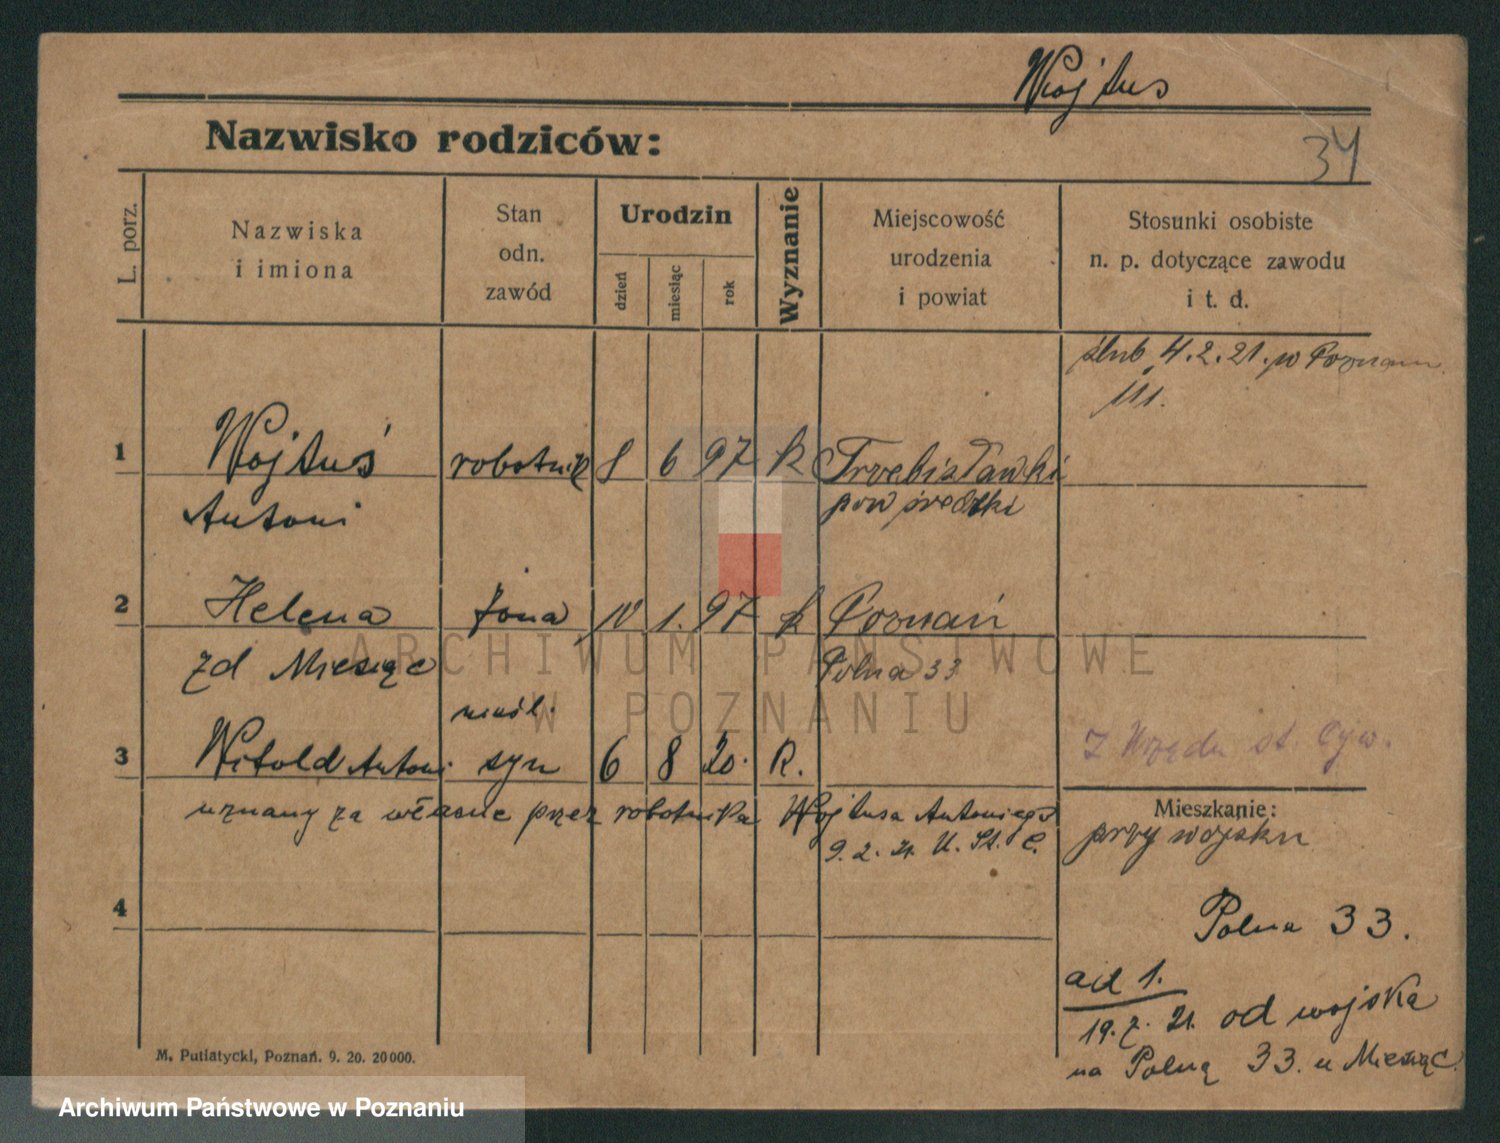 Wojtus
Nazwisko rodziców:
34
L. porz.
Nazwiska
i imiona
Stan
odn.
zawód
Urodzin
dzień
miesiąc
rok
Wyznanie
Miejscowość
urodzenia
i powiat
Stosunki osobiste
n. p. dotyczące zawodu
i t. d.
ślub 4.2.21. w Poznaniu
III.
1 Wojtuś robotnik 8 6 97 k Trzebisławki
Antoni pow średzki
2 Helena żona 1. 97 k Poznań
zd Miesiąc Polna 33
nieśl.
3 Witold Antoni syn 6 8 20. R.
Z Urzędu st. Cyw.
uznany za własne przez robotnika Wojtusa Antoniego
9. 2. 21. U. St. C.
Mieszkanie:
przy wojsku
4
Polna 33.
ad 1.
19. 7. 21. od wojska
na Polną 33. u Miesiąc
M. Putiatycki, Poznań. 9. 20. 20000.
ARCHIWUM PAŃSTWOWE
W POZNANIU
Archiwum Państwowe w Poznaniu